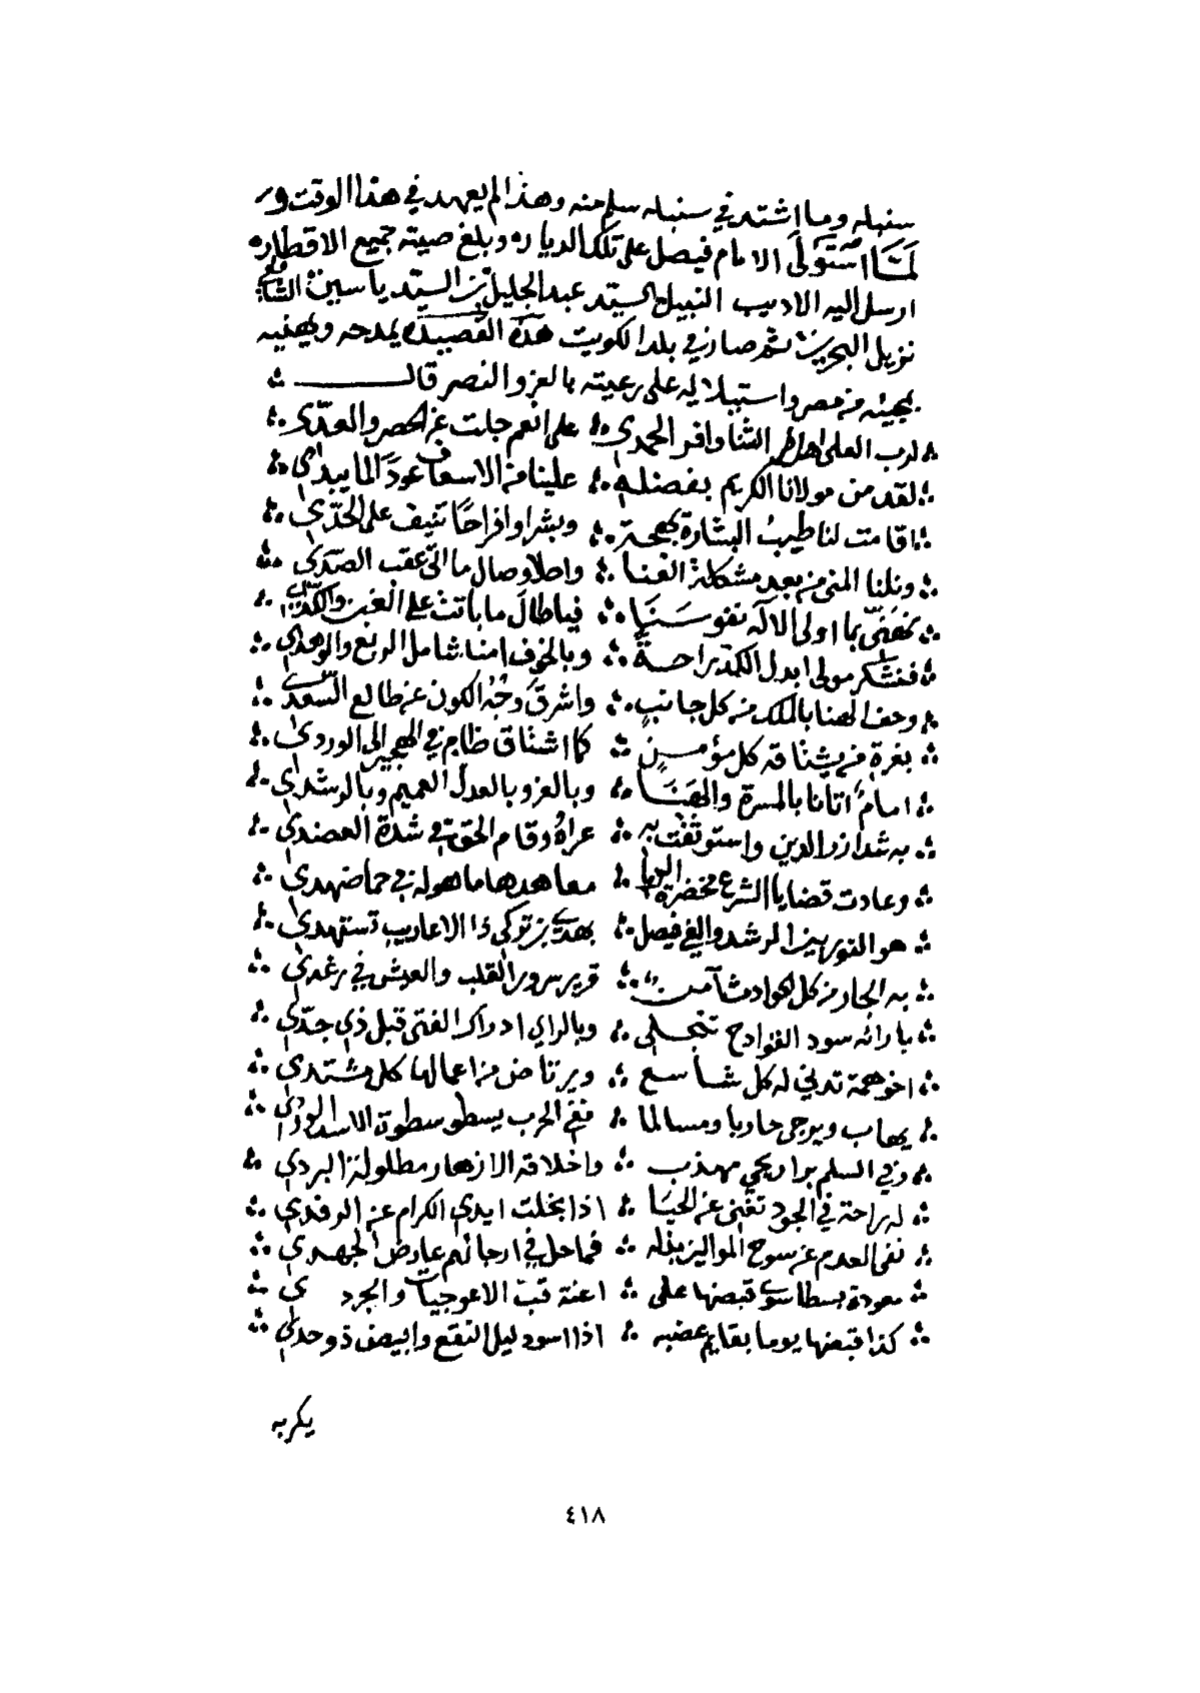 سنبله وما اشتد في سنبله سلم منه وهذا لم يعهد في هذا الوقت
لَمَّا اسْتَوَلَى الامام فيصل على تلك الدياره وبلغ صيته جميع الاقطاره
ارسل اليه الاديب النبيل السيد عبد الجليل بن السيد ياسين الشافعي
نزيل البحرين ثم صار في بلد الكويت هذه القصيده يمدحه ويهنيه
بمجيئه من مصر واستيلايه على رعيته بالعز والنصر قال
لرب العلى اهل الثنا وافر الحمدي على انعم جلت عن الحصر والعدّي
لقد من مولانا الكريم بفضله علينا من الاسعاف عودَ الما يبدي
اقامت لنا طيبُ البشارة بهجة وبشرا وافراحًا تنيف على الحدّي
ونلنا المنى من بعد مشكلة العنا واحلا وصال ما اتى عقب الصدّي
بما اولى الاله نفوسَنَا فياطالَ ما باتت على الغبن والكدّي
فنشكر مولى ابدل الكد براحة وبالخوف امنا شامل الربع والوهدي
وحف الهنا بالملك من كل جانبٍ واشرقَ وجْهُ الكون عن طالع السّعدي
بغرة من يشتاقه كل مؤمنٍ كما اشتاق ظامٍ في الهجير الى الوردي
امامٌ اتانا بالمسرة والهنَا وبالعز وبالعدل العميم وبالرشدي
به شد ازر الدين واستوثقت به عراهُ وقام الحق في شدة العضدي
وعادت قضايا الشرع مخضرة الربا معاهدها ماهولة في حما ضهدي
هو النور بين الرشد والغي فيصل بهديه تركى ذا الاعاريب تستهدي
به الجار من كل الحوادث آمن قرير سرور القلب والعيش في رغدي
بارائه سود الفوادح تنجلى وبالراي ادراك الفتى قبل ذي جدّي
اخو همة تدني له كل شاسع ويرتاض من اعمالها كل مشتدي
يهاب ويرجى حاربا ومسالما ففي الحرب يسطو سطوة الاسد الوردي
وفي السلم برا ريحي مهذب واخلاقه الازهار مطلولة البردي
له راحة في الجود تغنى عن الحيَا اذا بخلت ايدي الكرام عن الرفدي
نفى العدم عن سوح الموالين بذله فما حل في ارجائهم عارض الجهدي
معودة بسطا سوى قبضها على اعنة قبّ الاعوجيات والجرد ي
كذا قبضها يوما بقايم عضبه اذا اسود ليل النقع وابيض ذو حدي
يكر به
٤١٨